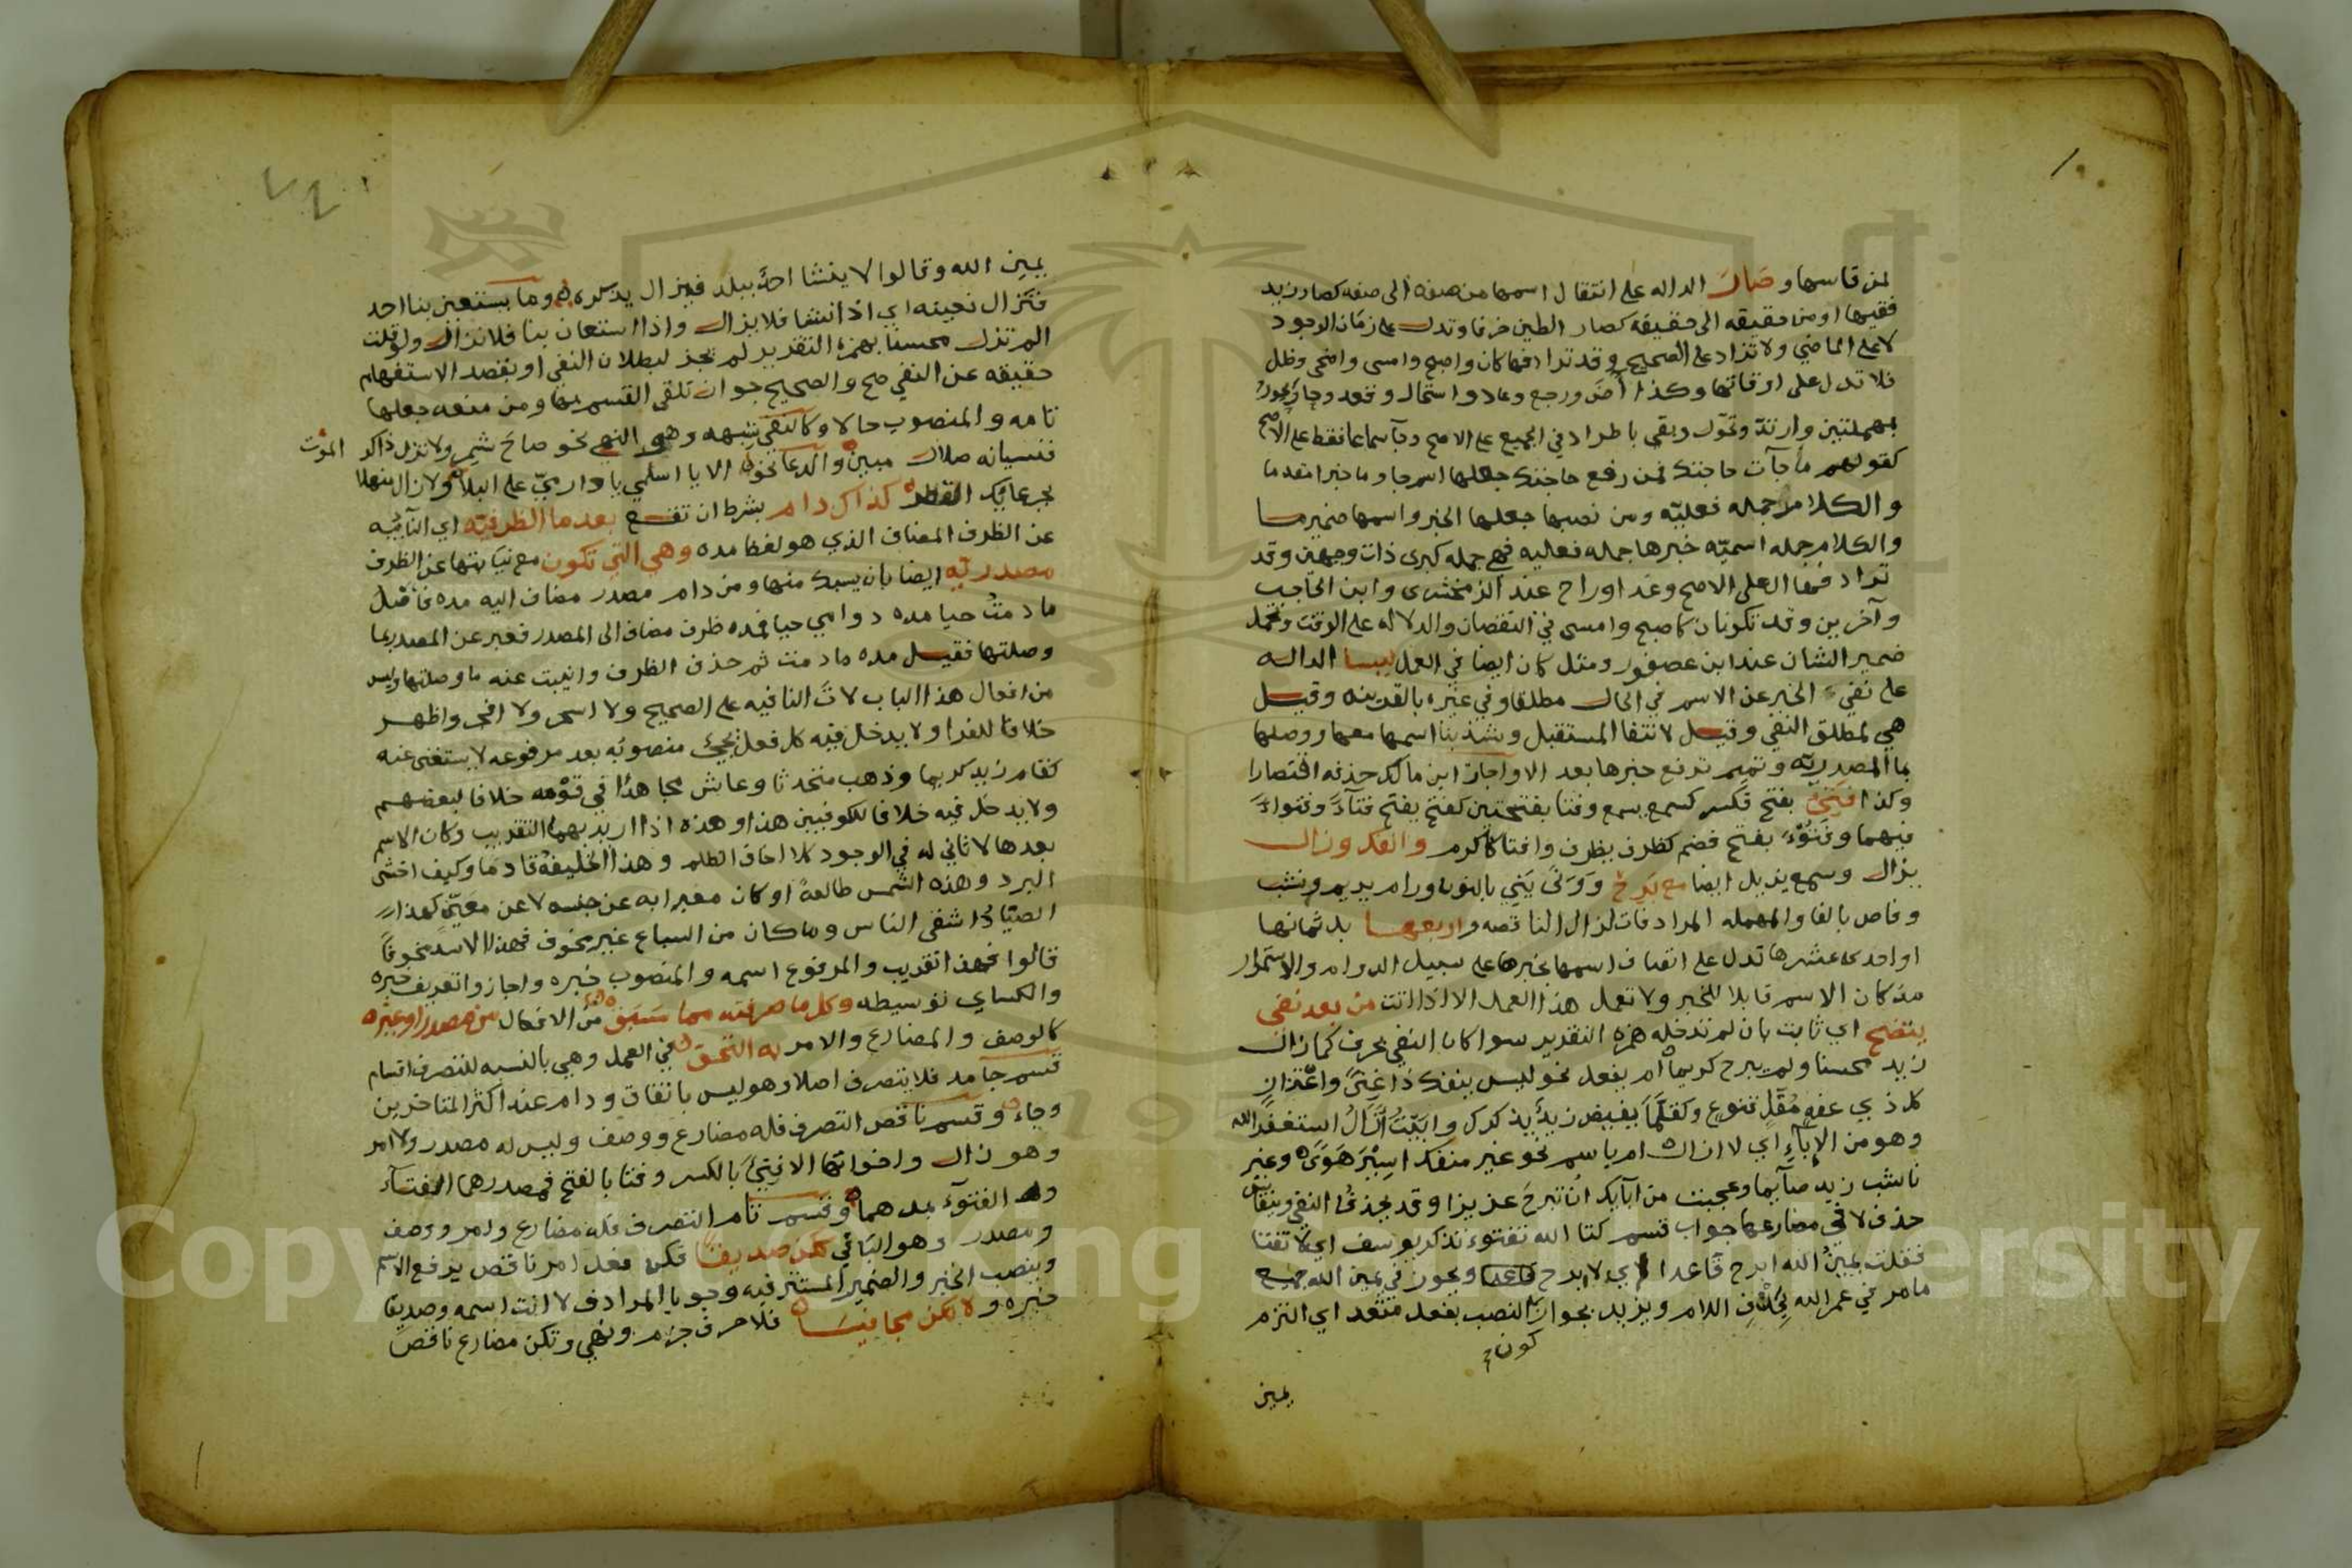 لمن قاسها وصار الداله على انتقال اسمها من صفه الى صفه كصار زيد
فقيها او من حقيقه الى حقيقه كصار الطين خزفا وتدل على زمان الوجود
لا على الماضي ولا تزاد على الصحيح وقد ترادفها كان واصبح وامسى واضحى وظل
فلا تدل على اوقاتها وكذا آض ورجع وعاد واستحال وقعد وحار
بمهملتين وارتد وتحول وبقي باطراد في الجميع على الاصح وجآ سماعا فقط على الاصح
كقولهم ما جآت حاجتك فمن رفع حاجتك جعلها اسم جا وما خبرا مقدما
والكلام جمله فعليه ومن نصبها جعلها الخبر واسمها ضمير ما
والكلام جمله اسميه خبرها جمله فعليه فهي جمله كبرى ذات وجهين وقد
تزاد على الاصح وغدا وراح عند الزمخشرى وابن الحاجب
وآخرين وقد تكونان كاصبح وامسى في النقصان والدلاله على الوقت وتحمل
ضمير الشان عند ابن عصفور ومثل كان ايضا في العمل ليس الداله
على نفي الخبر عن الاسم في الحال مطلقا وفي غيره بالقرينه وقيل
هي لمطلق النفي وقيل لانتفا المستقبل وشذ بنا اسمها معها ووصلها
بما المصدريه وتميم ترفع خبرها بعد الا واجاز ابن مالك حذفه اقتصارا
وكذا فتئ بفتح فكسر كسمع يسمع وفتا بفتحتين كفتح يفتح فتآءً وفتوءاً
فيهما وفتؤ بفتح فضم كظرف يظرف وافتا كاكرم وانفك وزال
يزال وسمع يزيل ايضا مع برح وونى يني بالنون ورام يريم ونشب
وفاص بالفا والمهمله المرادفات لزال الناقصه واربعها بل ثمانها
او احدى عشرها تدل على اتصاف اسمها بخبرها على سبيل الدوام والاستمرار
مذ كان الاسم قابلا للخبر ولا تعمل هذا العمل الا اذا اتت من بعد نفي
يتضح اي ثابت بان لم تدخله همزه التقدير سوا كان النفي بحرف كما زال
زيد محسنا ولم يبرح كريما ام بفعل نحو ليس ينفك ذا غنى واعتزاز
كل ذي عفه مقل قنوع وكقلما يفيض زيد يذكرك وابيت ازال استغفر الله
وهو من الإباء اي لا ازال ام باسم نحو غير منفك اسير هوى وغير
ناشب زيد صآيما وعجبت من ابآيك ان تبرح عزيزا وقد يحذف النفي وينقاس
حذف لا في مضارعها جواب قسم كتا الله تفتوء تذكر يوسف اي لا تفتا
فقلت يمين الله ابرح قاعدا اي لا ابرح ويجوز في يمين الله جميع
ما مر في عمر الله بخلاف اللام ويزيد بجواز النصب بفعل متعد اي التزم
كون
يمين
يمين الله وقالوا لا ينشا احد ببلد فيزال يذكره وما يستعين بنا احد
فنزال نعينه اي اذا انتفا فلا يزال واذا استعان بنا فلا نزال ولو قلت
الم تزل محسنا بهمزه التقرير لم يجز لبطلان النفي او بقصد الاستفهام
حقيقه عن النفي صح والصحيح جواز تلقي القسم بها ومن منعه جعلها
تامه والمنصوب حالا وكالنفي شبهه وهو النهي نحو صاح شمر ولا تزل ذاكر الموت
فنسيانه ضلال مبين والدعا نحو الا يا اسلمي يا دار مي على البلا ولا زال منهلا
بجرعايك القطر كذاك دام بشرط ان تقع بعد ما الظرفيه اي النآئبه
عن الظرف المضاف الذي هو لفظ مده وهي التي تكون مع نيابتها عن الظرف
مصدريه ايضا بان يسبك منها ومن دام مصدر مضاف اليه مده فاصل
ما دمت حيا مده دوامي حيا فمده ظرف مضاف الى المصدر فعبر عن المصدر بما
وصلتها فقيل مده ما دمت ثم حذف الظرف وانيبت عنه ما وصلتها وليس
من افعال هذا الباب لات النافيه على الصحيح ولا اسحر ولا افجر واظهر
خلافا للفرا ولا يدخل فيه كل فعل يجيئ منصوبه بعد مرفوعه لا يستغنى عنه
كقام زيد كريما وذهب متحدثا وعاش مجاهدا في قومه خلافا لبعضهم
ولا يدخل فيه خلافا للكوفيين هذا وهذه اذا اريد بهما التقريب وكان الاسم
بعدها لا ثاني له في الوجود كلا اخاف الظلم وهذا الخليفة قادما وكيف اخشى
البرد وهذه الشمس طالعة او كان معبرا به عن جنسه لا عن معين كهذا
الصياد اشقى الناس وما كان من السباع غير مخوف فهذا الاسد مخوفا
قالوا فهذا تقريب والمرفوع اسمه والمنصوب خبره واجازوا تعريف خبره
والكساي توسيطه وكل ما صرفته مما سبق من الافعال من مصدر او غيره
كالوصف والمضارع والامر به التحق في العمل وهي بالنسبه للتصرف اقسام
قسم جامد فلا يتصرف اصلا وهو ليس باتفاق ودام عند اكثر المتاخرين
وجاء وقسم ناقص التصرف فله مضارع ووصف وليس له مصدر ولا امر
وهو زال واخواتها الا فتئ بالكسر وفتا بالفتح فمصدرهما الفتآء
والفتوء بل هما وقسم تام التصرف فله مضارع وامر ووصف
ومصدر وهو الباقي ككن صديقا فكن فعل امر ناقص يرفع الاسم
وينصب الخبر والضمير المستتر فيه وجوبا المرادف لانت اسمه وصديقا
خبره ولا تكن مجافيا فلا حرف جزم ونهي وتكن مضارع ناقص